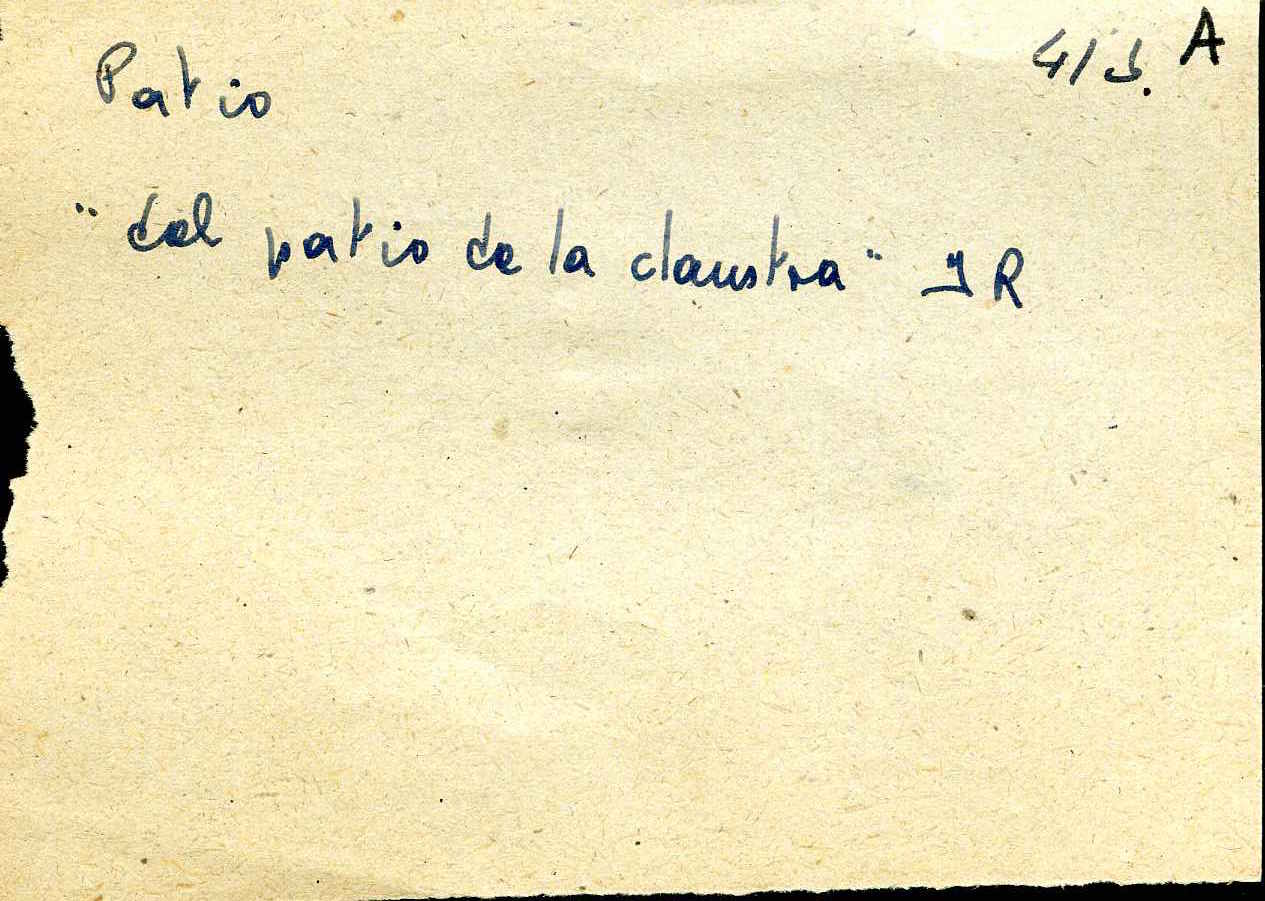 Patio
A
"del patio de la claustra" J R